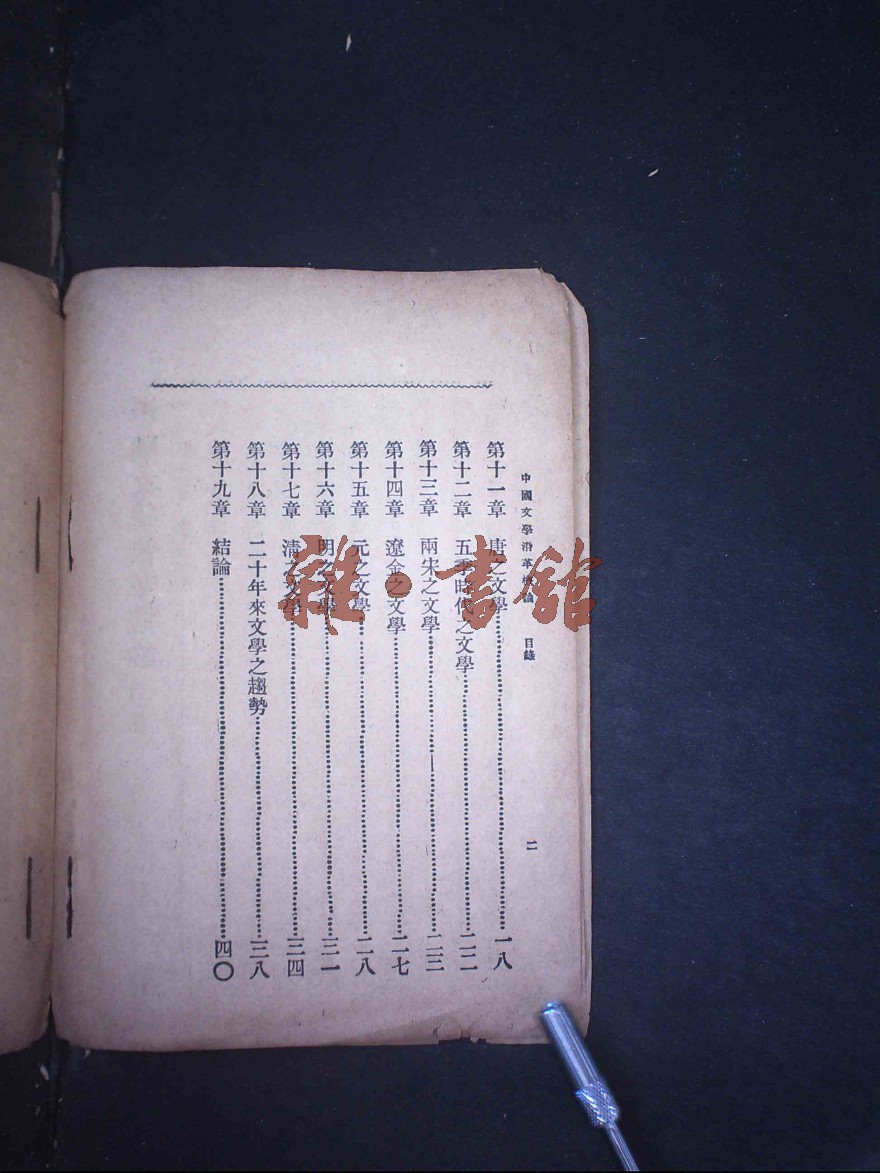 中國文學沿革概論 目錄 二
第十一章 唐之文學 一八
第十二章 五季時代之文學 二二
第十三章 兩宋之文學 二三
第十四章 遼金之文學 二七
第十五章 元之文學 二八
第十六章 明之文學 三一
第十七章 清之文學 三四
第十八章 二十年來文學之趨勢 三八
第十九章 結論 四〇
雜·書館